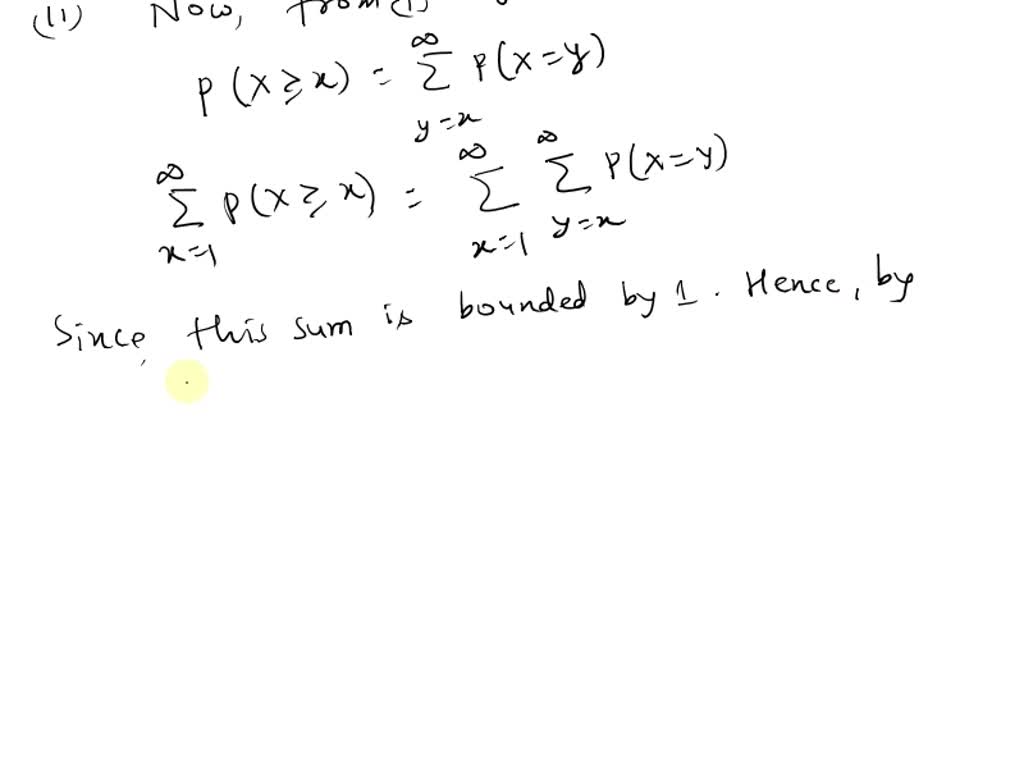 (11) Now, from (1)
P(X ≥ x) = ∞ Σ y=x P(X=y)
∞ Σ x=1 P(X ≥ x) = ∞ Σ x=1 ∞ Σ y=x P(X=y)
Since, this sum is bounded by 1. Hence, by